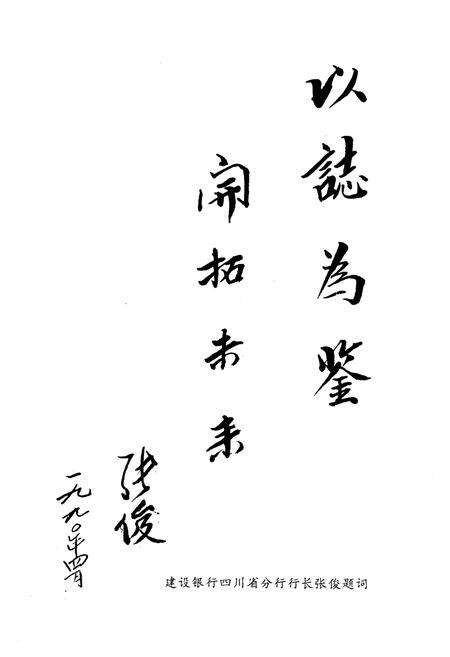 以誌为鉴
開拓未来
张俊
一九九〇年四月
建设银行四川省分行行长张俊题词